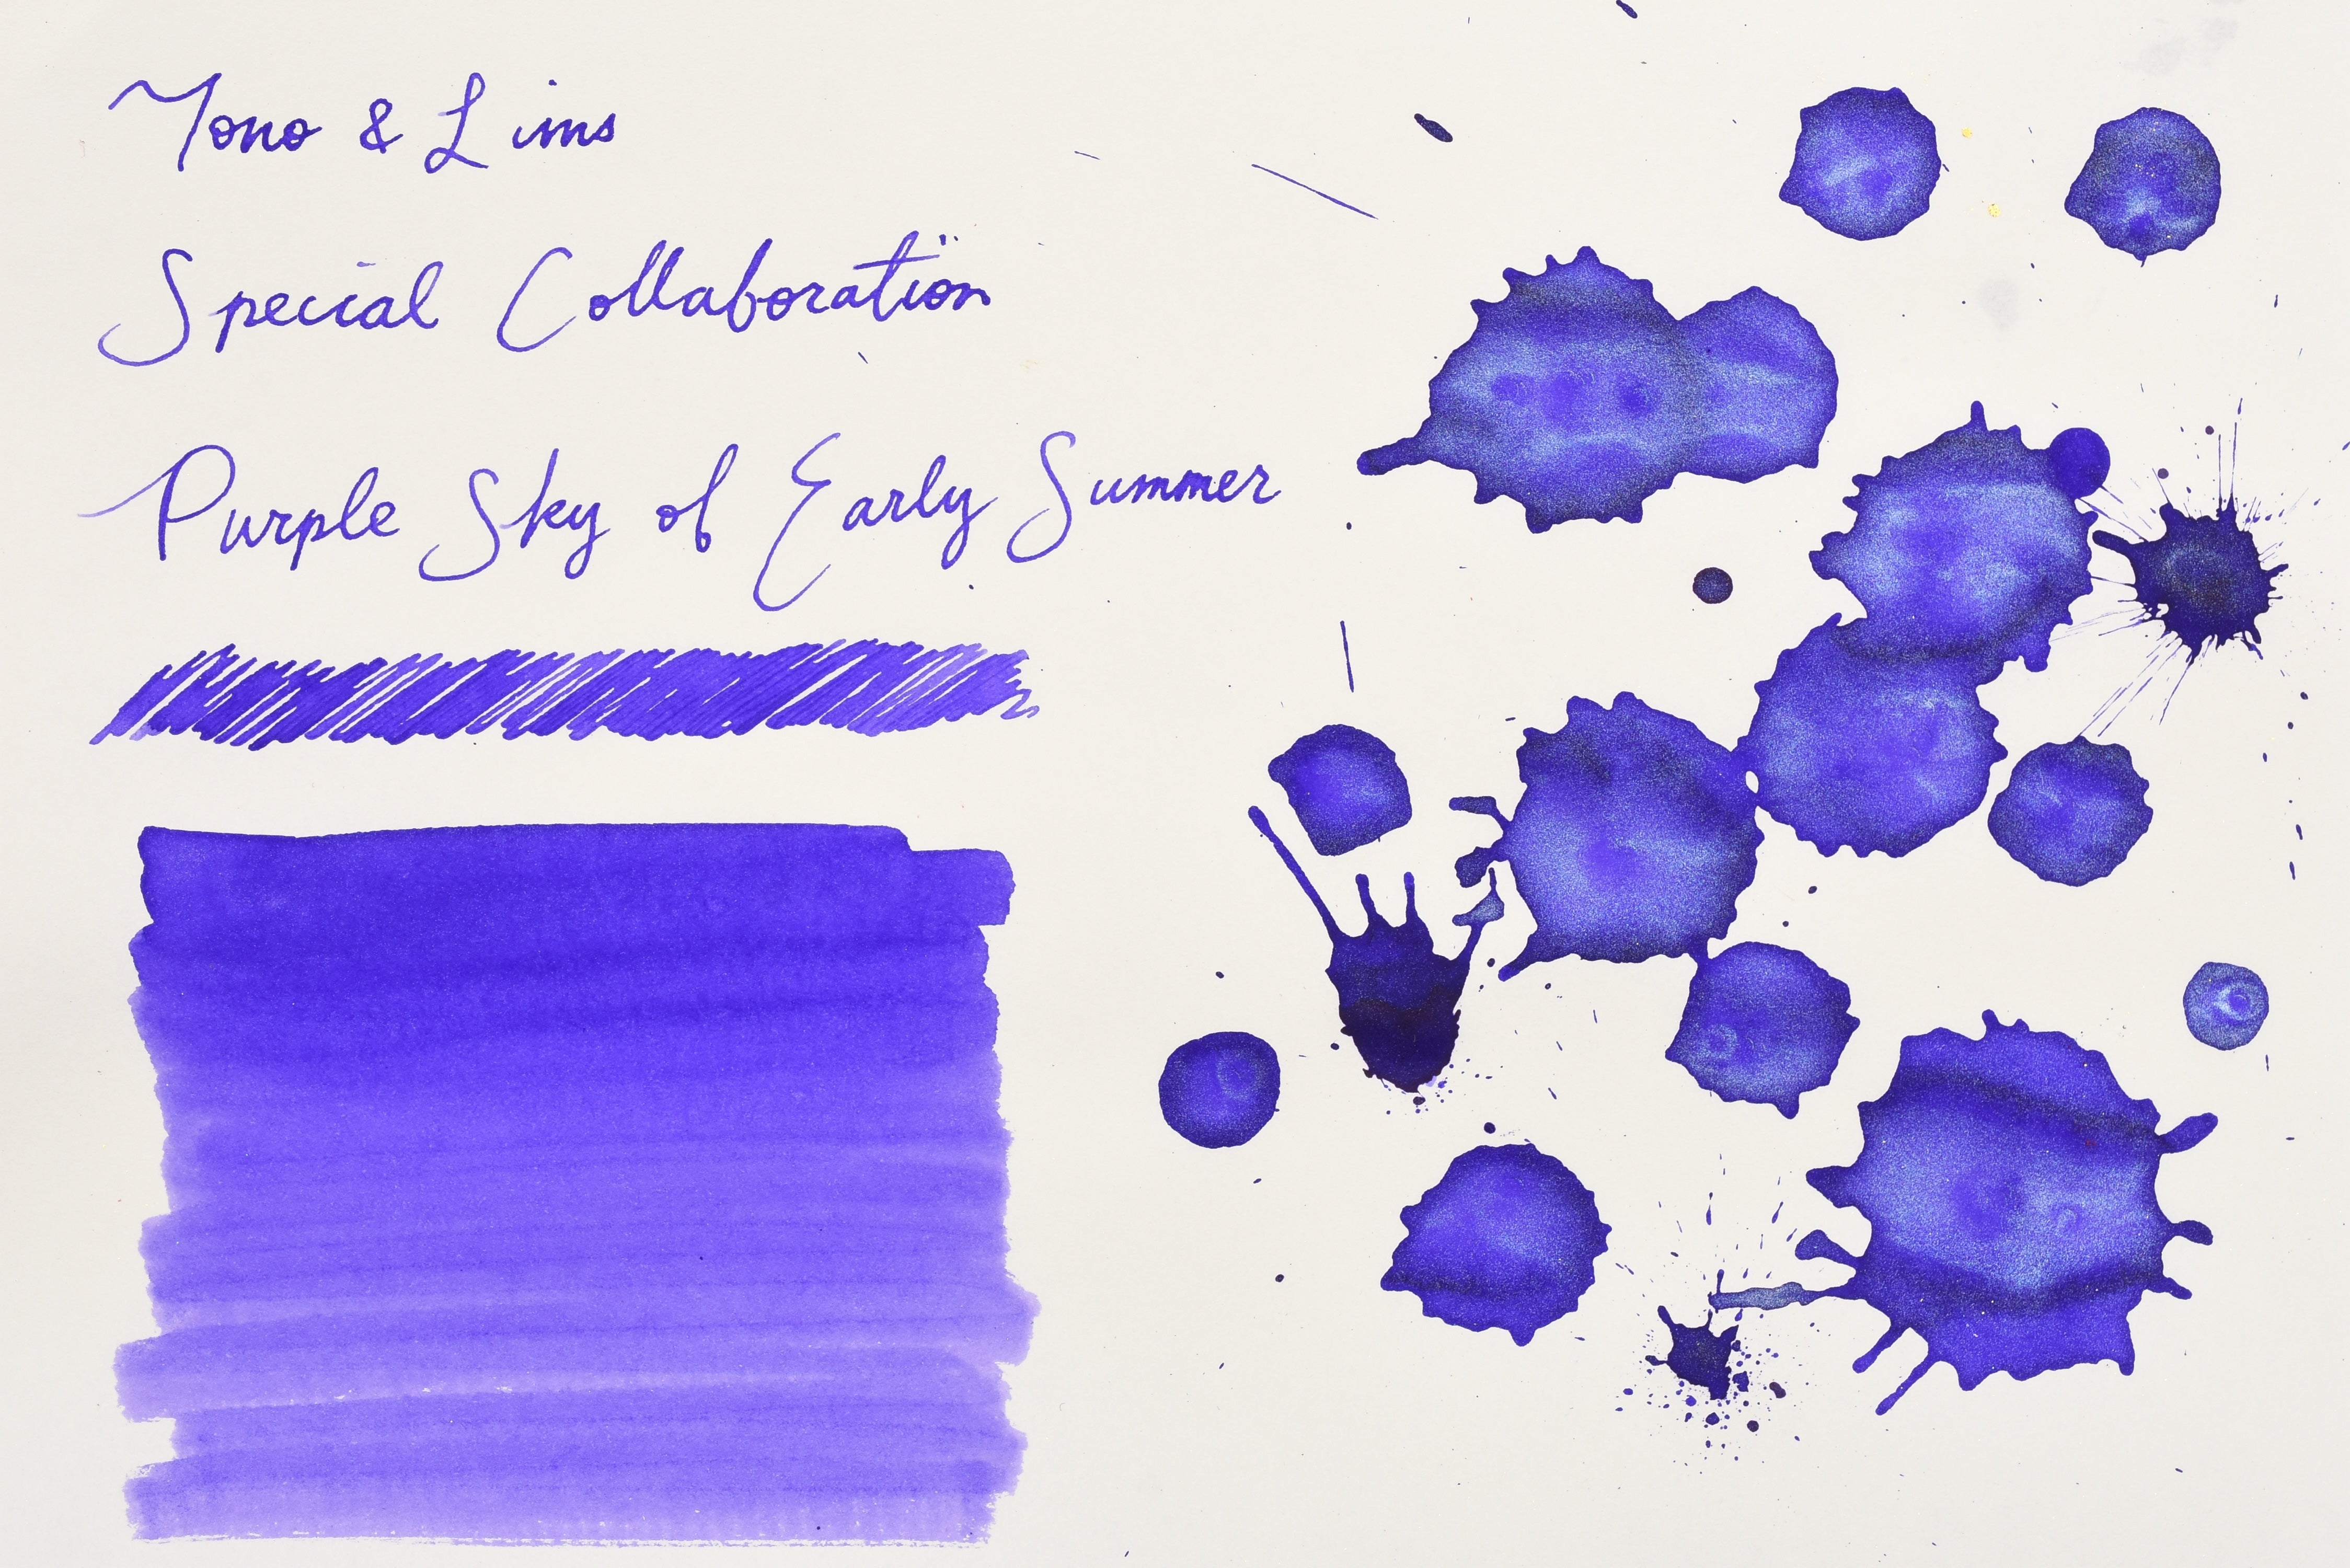 Tono & Lims
Special Collaboration
Purple Sky of Early Summer